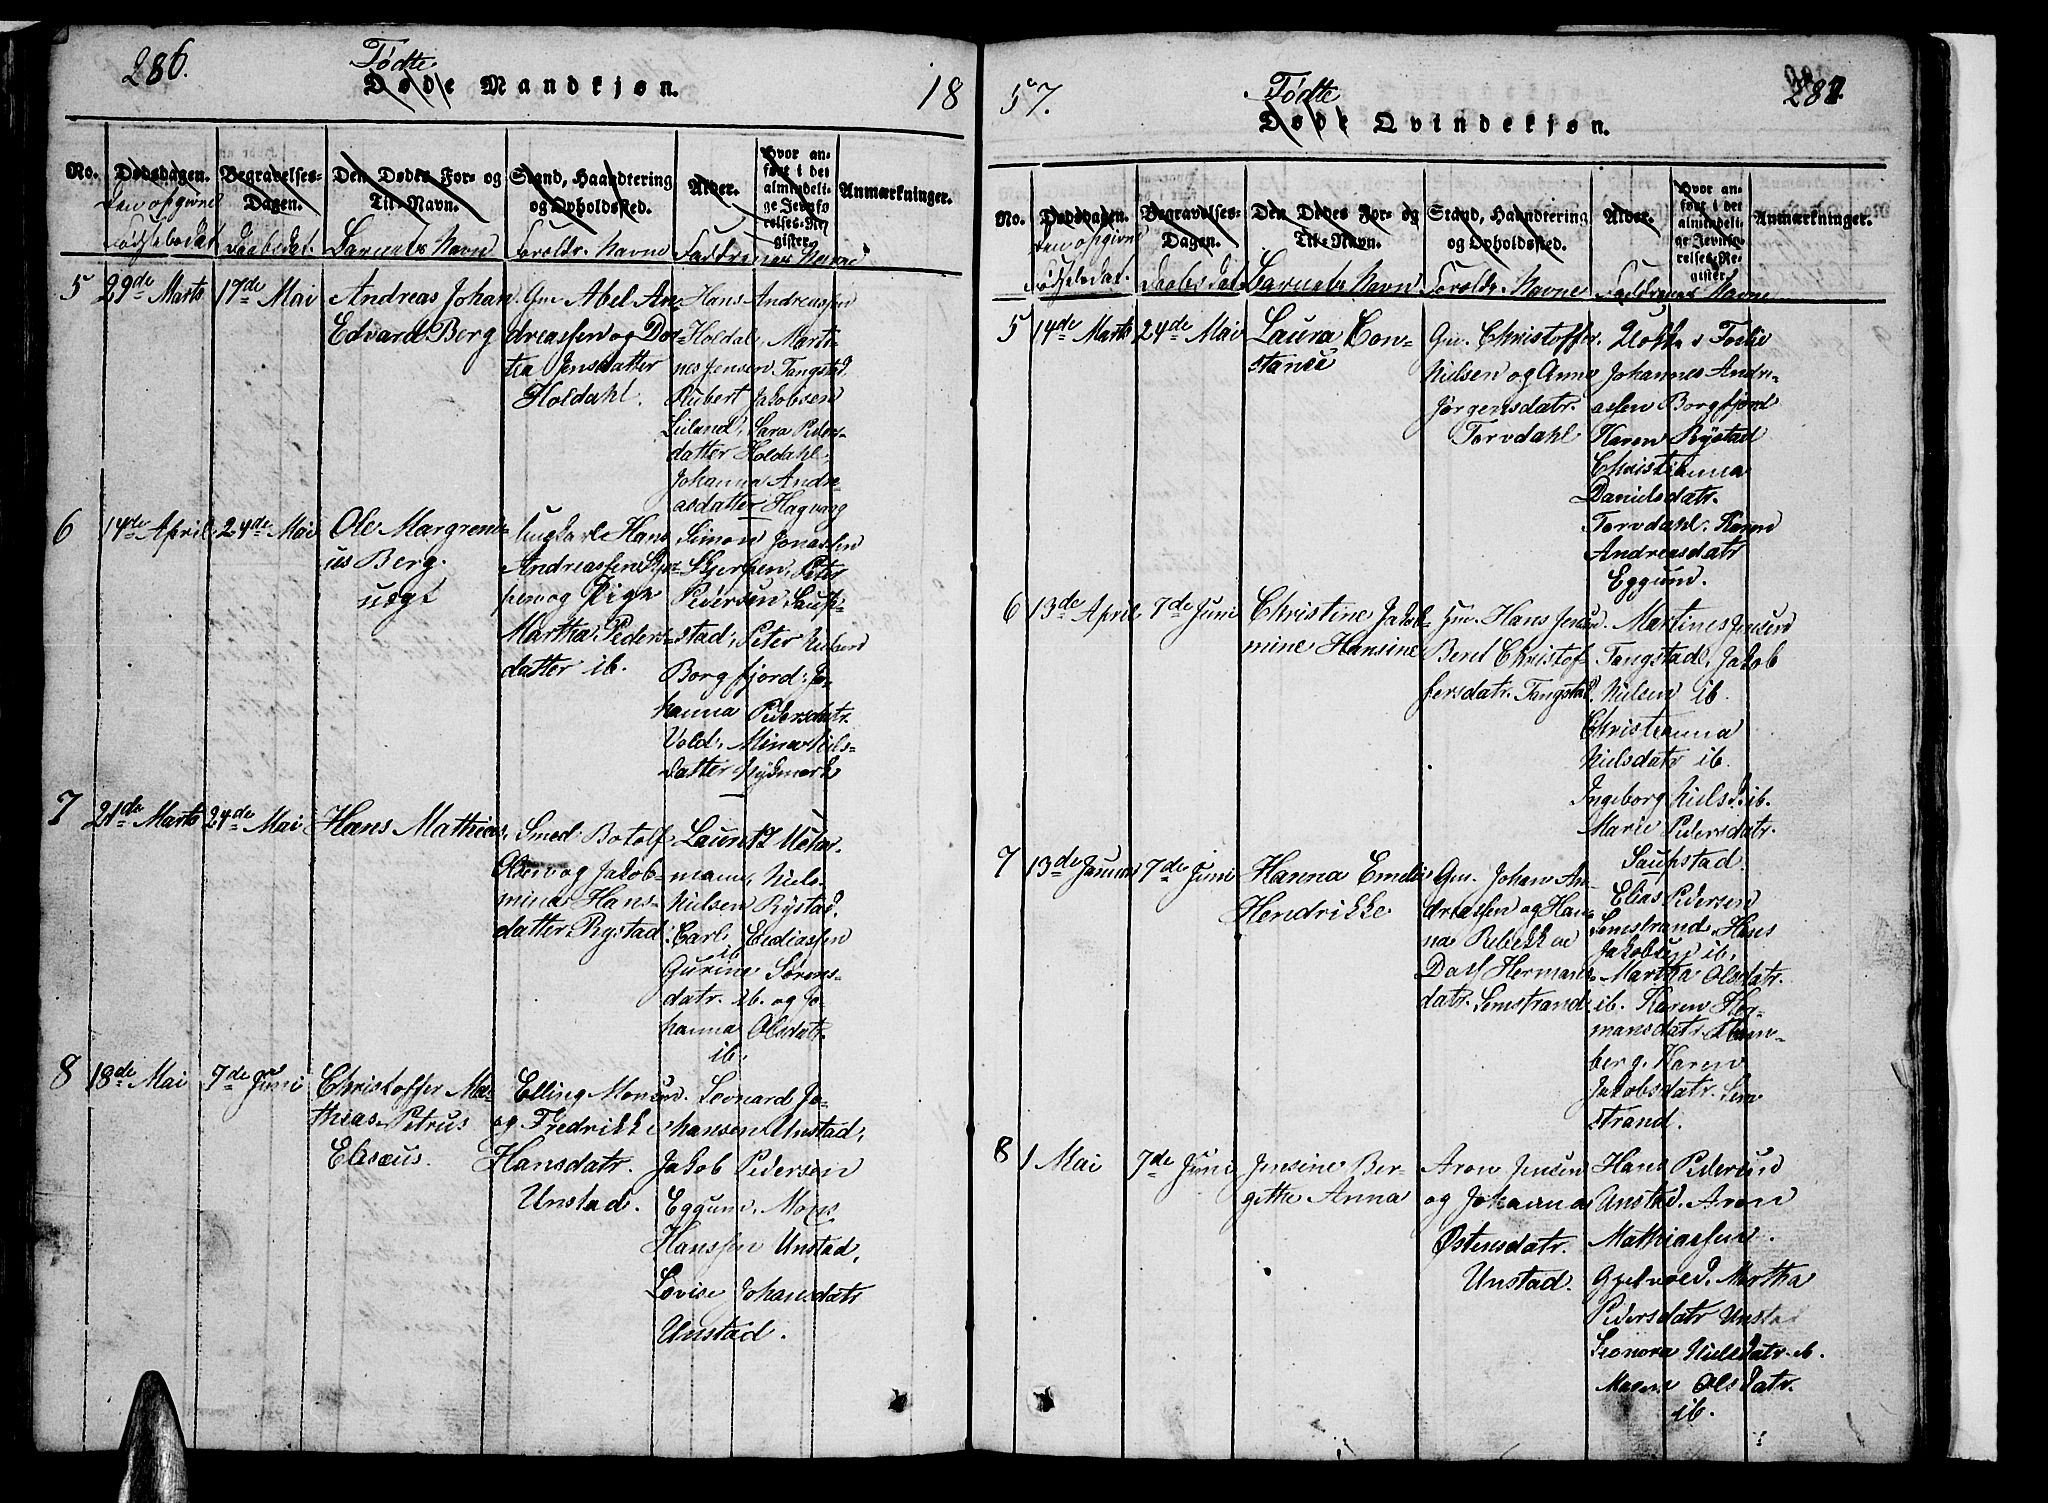 286.
Tødte
Døde Mandkjøn.
18
No.
Dødsdagen.
Begravelses-
Dagen.
Den Dødes For- og
Til-Navn.
Stand, Haandtering
og Opholdssted.
Alder.
Hvor an-
ført i det
almindeli-
ge Jevnfø-
relses-Re-
gister.
Anmærkninger.
Den opgivne
Fødselsdat.
Daabsdat.
Barnets Navn
Foreldr. Navne
Faddrenes Navne
5
29de Marts
17de Mai
Andreas Johan
Edvard Berg
Gm. Abel An-
dreassen og Do-
tea Jensdatter
Holdahl.
Hans Andreassen
Holdal, Marti-
nes Jensen Tangstad.
Rubert Jakobsen
Leiland, Sara Peders-
datter Holdahl,
Johanna Andre-
asdatter Hagvang
6
14de April
24de Mai
Ole Margreni-
us Berg.
uegt
Ungkarl Hans
Andreassen Skjer-
pen og Pige
Martha Peders-
datter ib.
Simon Jonassen
Skjerpen, Peter
Pedersen Saup-
stad, Peter Nielsen
Borgfjord, Jo-
hanna Pedersdatr.
Vold, Mina Niels-
datter Nykmark
7
21de Marts
24de Mai
Hans Mathias
Smed Botolf
Olsen og Jakob-
mina Hans-
datter Rystad
Lauritz
mann, Niels
Nielsen Rystad.
Carl Eediassen
ib
Gurine Sørens-
datr. ib. og Jo-
hanna Olsdatr.
ib.
8
18de Mai
7de Juni
Christoffer Ma-
thias Petrus
Elisæus.
Elling Monsen
og Fredrikke
Hansdatr.
Unstad.
Leonard Jo-
hansen Unstad,
Jakob Pedersen
Eggum, Mons
Hanssen Unstad,
Lovise Johansdatr
Unstad.
57.
Tødte
Døde Qvindekjøn.
287.
No.
Dødsdagen.
Begravelses-
Dagen.
Den Dødes For- og
Til-Navn.
Stand, Haandtering
og Opholdssted.
Alder.
Hvor an-
ført i det
almindeli-
ge Jevnfø-
relses-Re-
gister.
Anmærkninger.
Den opgivne
Fødselsdat.
Daabsdat.
Barnets Navn
Foreldr. Navne
Faddrenes Navne
5
14de Marts
24de Mai
Laura Con-
stance
Gm. Christoffer
Nielsen og Anne
Jørgensdatr.
Torvdahl
Johannes Andre-
assen Borgfjord
Karen Rystad
Christianna
Danielsdatr.
Torvdahl. Karen
Andreasdatr
Eggum.
6
13de April
7de Juni
Christine Jakob-
mine Hansine
Gm. Hans Jensen
Beret Christof-
fersdatr. Tangstad
Martines Jensen
Tangstad, Jakob
Nielsen ib.
Christianna
Nielsdatr ib.
Ingeborg Nielsd. ib.
Marie Pedersdatr.
Saupstad
7
13de Januar
7de Juni
Hanna Emelie
Hendrikke
Gm. Johan An-
dreassen og Han-
na Rebekka
Dass Hermans-
datr. Semstrand
Elias Pedersen
Semstrand, Hans
Jakobsen ib.
Martha Olsdatr.
ib. Karen Her-
mansdatr. Stein-
berg, Karen
Jakobsdatr. Sem
strand.
8
1 Mai
7de Juni
Jensine Ber-
githe Anna
Aron Jensen
og Johanna
Østensdatr.
Unstad.
Hans Pedersen
Unstad. Aron
Mathiassen.
Gjelvold, Martha
Pedersdatr Unstad
Leonora Nielsdatr. ib.
Maren Olsdatr.
ib.